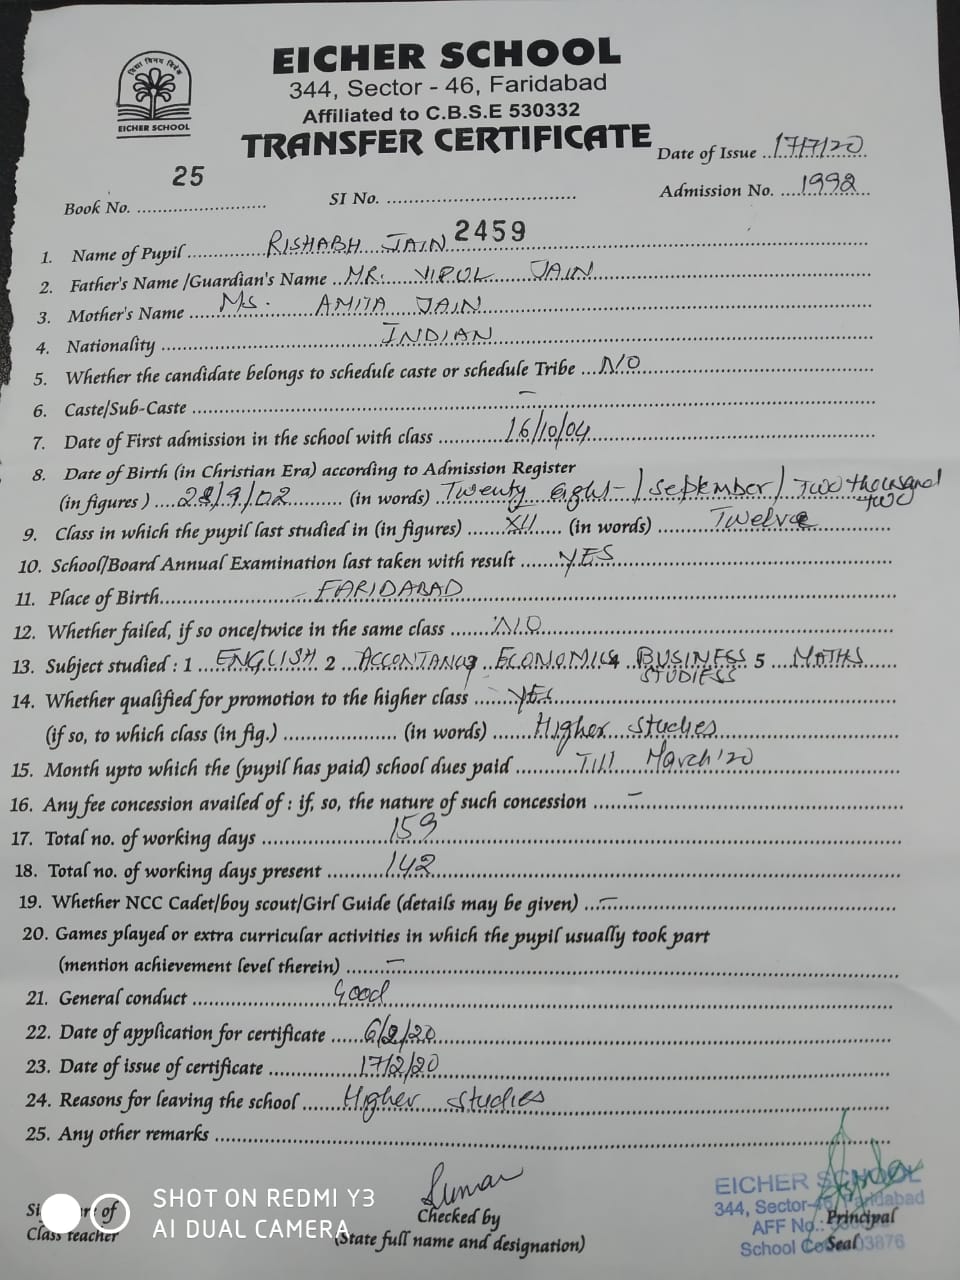 विद्या विनय विवेक
EICHER SCHOOL
EICHER SCHOOL
344, Sector - 46, Faridabad
Affiliated to C.B.S.E 530332
TRANSFER CERTIFICATE
Date of Issue ..17/7/20
25
Book No. ........................ SI No. .................................... Admission No. ....1992....
2459
1. Name of Pupil ............ RISHABH JAIN
2. Father's Name /Guardian's Name ..MR. VIPUL JAIN
3. Mother's Name ..... Ms. AMITA JAIN
4. Nationality ............ INDIAN
5. Whether the candidate belongs to schedule caste or schedule Tribe ...NO
6. Caste/Sub-Caste ............ –
7. Date of First admission in the school with class ............ 16/10/04
8. Date of Birth (in Christian Era) according to Admission Register
(in figures ) ....28/9/02............ (in words) .Twenty eight-/september/Two thousand two
9. Class in which the pupil last studied in (in figures) ......XII...... (in words) ........Twelve
10. School/Board Annual Examination last taken with result .......YES
11. Place of Birth............ FARIDABAD
12. Whether failed, if so once/twice in the same class ......NO
13. Subject studied : 1 ...ENGLISH. 2 ..ACCONTANCY 3 ..ECONOMICS 4 ..BUSINESS STUDIESS 5 ...MATHS
14. Whether qualified for promotion to the higher class ......YES
(if so, to which class (in fig.) ........................ (in words) ......Higher studies
15. Month upto which the (pupil has paid) school dues paid ......... Till March'20
16. Any fee concession availed of : if, so, the nature of such concession ...... –
17. Total no. of working days ............ 159
18. Total no. of working days present ......... 142
19. Whether NCC Cadet/boy scout/Girl Guide (details may be given) ... –
20. Games played or extra curricular activities in which the pupil usually took part
(mention achievement level therein) ...... –
21. General conduct ............ Good
22. Date of application for certificate ......6/2/20
23. Date of issue of certificate ............ 17/2/20
24. Reasons for leaving the school ......Higher studies
25. Any other remarks ............
Class teacher
Suman
Checked by
(State full name and designation)
EICHER SCHOOL
344, Sector-46, Faridabad
AFF No.:
Principal
School Co 03876
Seal
SHOT ON REDMI Y3
AI DUAL CAMERA